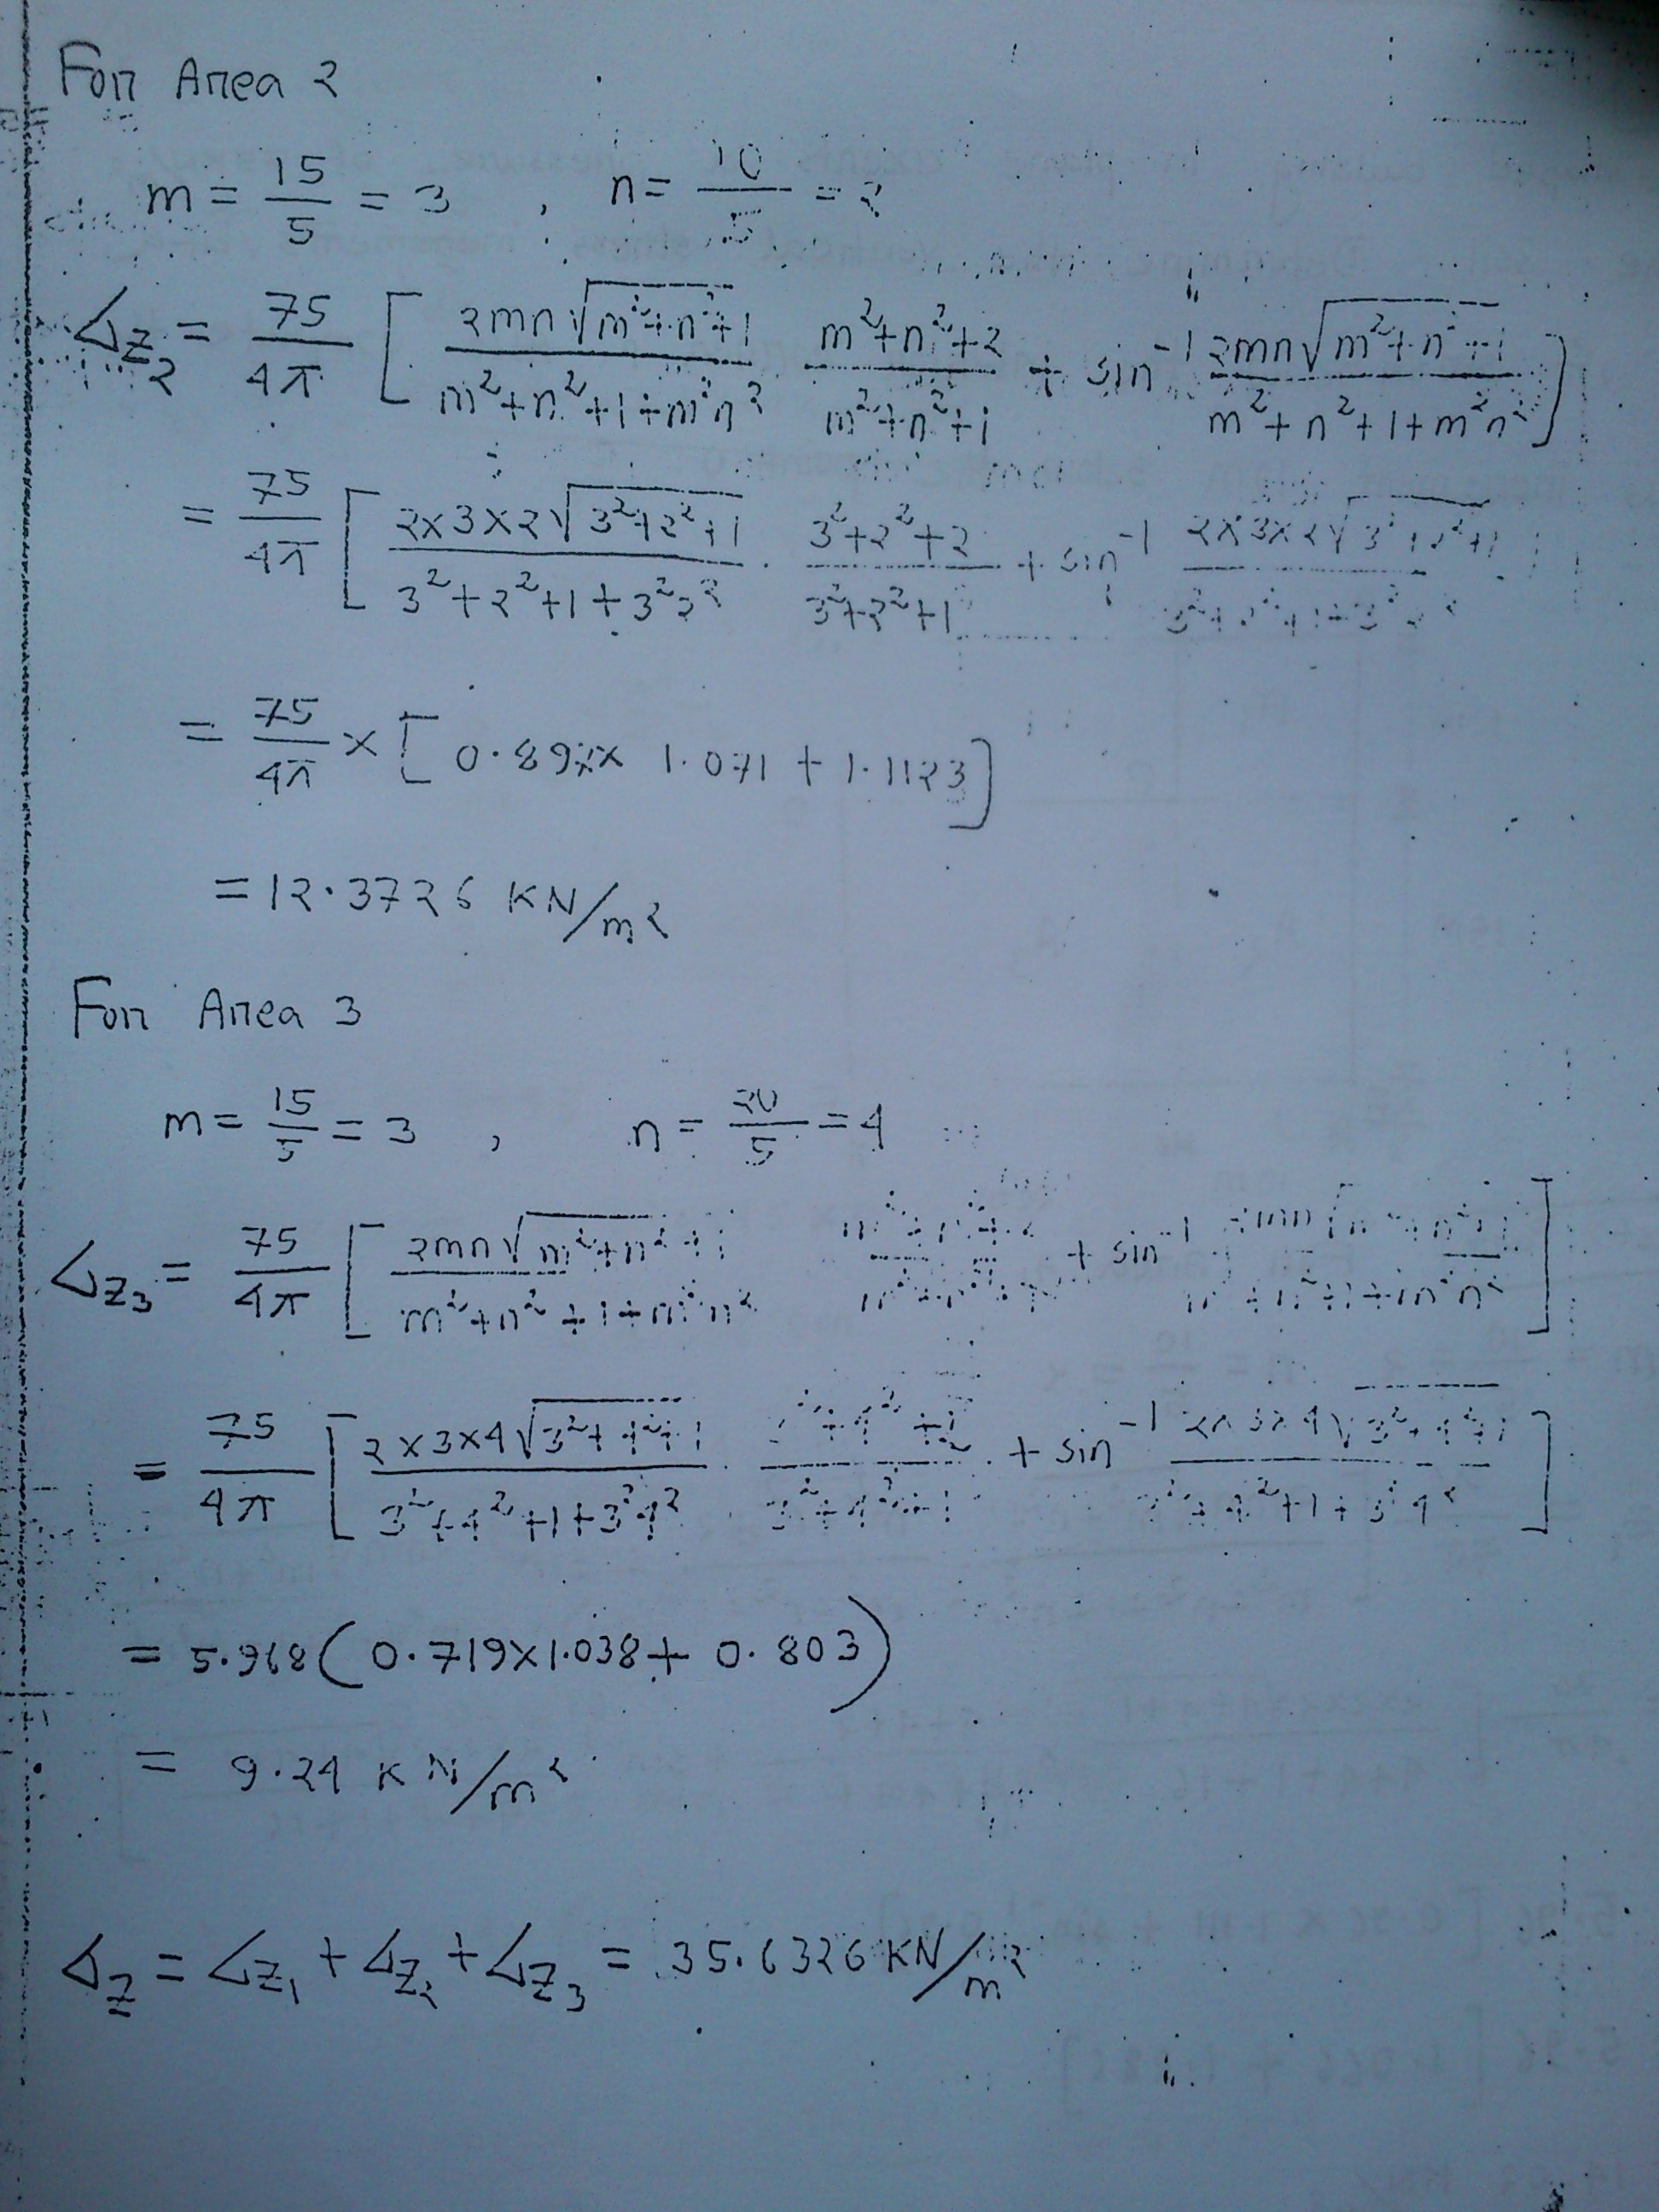 For Area 2
m = 15/5 = 3 , n = 10/5 = 2
Δz₂ = 75/4π [ 2mn√(m²+n²+1) / (m²+n²+1+m²n²) (m²+n²+2) / (m²+n²+1) + sin⁻¹ 2mn√(m²+n²+1) / (m²+n²+1+m²n²) ]
= 75/4π [ 2×3×2√(3²+2²+1) / (3²+2²+1+3²2²) · (3²+2²+2) / (3²+2²+1) + sin⁻¹ 2×3×2√(3²+2²+1) / (3²+2²+1+3²2²) ]
= 75/4π × [ 0.897× 1.071 + 1.1123 ]
= 12.3726 KN/m²
For Area 3
m = 15/5 = 3 , n = 20/5 = 4
Δz₃ = 75/4π [ 2mn√(m²+n²+1) / (m²+n²+1+m²n²) (m²+n²+2) / (m²+n²+1) + sin⁻¹ 2mn√(m²+n²+1) / (m²+n²+1+m²n²) ]
= 75/4π [ 2×3×4√(3²+4²+1) / (3²+4²+1+3²4²) · (3²+4²+2) / (3²+4²+1) + sin⁻¹ 2×3×4√(3²+4²+1) / (3²+4²+1+3²4²) ]
= 5.968 ( 0.719×1.038 + 0.803 )
= 9.24 KN/m²
Δz = Δz₁ + Δz₂ + Δz₃ = 35.6326 KN/m²